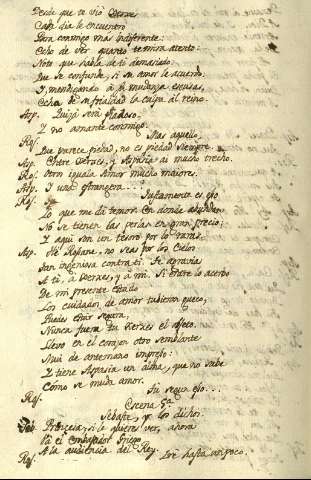 Desde que te vió Xerxes
Cada dia le encuentro
Para conmigo mas indiferente:
Echo de ver quanto te mira atento:
Noto que habla de ti demasiado
Que se confunde, si su amor le acuerdo
Y, mendigando á su mudanza escusas,
Echa de su frialdad la culpa al reino.
Asp. Quizá será piadoso,
Y no amante conmigo.
Ros. Mas aquello
Que parece piedad, no es piedad siempre.
Asp. Entre Xerxes, y Aspasia ai mucho trecho.
Ros. Otro iguala Amor mucho maiores.
Asp. Y una estrangera...
Ros. Justamente es eso
Lo que me da temor. En donde abundan
No se tienen las perlas en gran precio;
Y aqui son un tesoro por lo raras.
Asp. He Rosane, no seas por los Cielos
Tan ingeniosa contra ti. Te agravias
A ti, á Xerxes, y á mi. Si entre lo acerbo
De mi presente estado
Los cuidados de amor tubieran hueco,
Puedes estar segura,
Nunca fuera tu Xerxes el objeto.
Llevo en el corazon otro semblante
Mui de antemano impreso:
Y tiene Aspasia un alma, que no sabe
Cómo se muda amor.
Ros. Tú segun eso...
Escena 5ª
Sebaste, y los dichos.
Seb. Princesa, si le quieres ver, ahora
Va el embajador Griego
A la audiencia del Rey.
Ros. Iré hasta un poco.